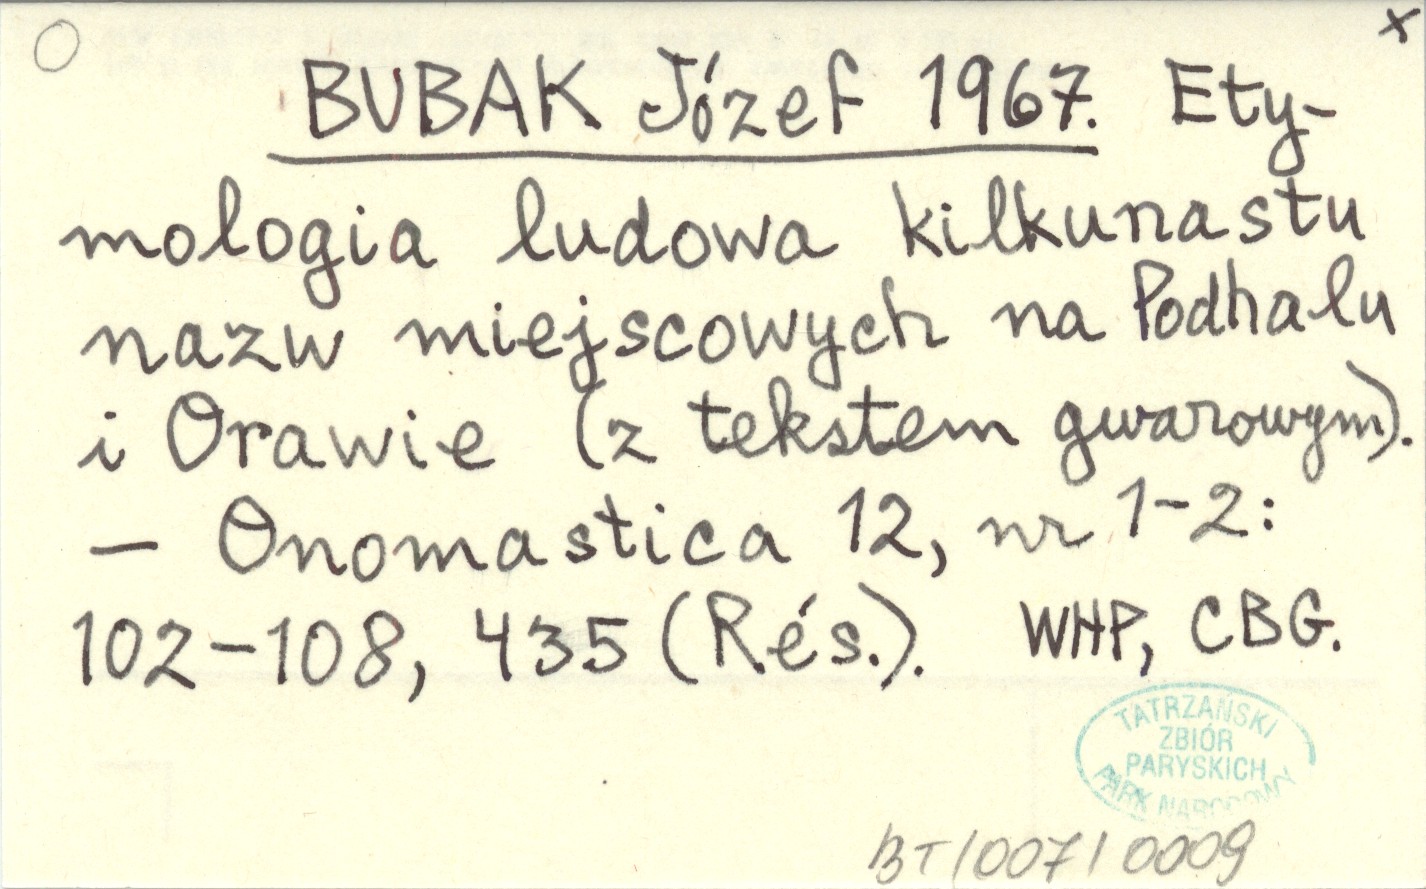 x
BUBAK Józef 1967. Ety-
mologia ludowa kilkunastu
nazw miejscowych na Podhalu
i Orawie (z tekstem gwarowym).
— Onomastica 12, nr 1-2:
102-108, 435 (Rés.). WHP, CBG.
TATRZAŃSKI
ZBIÓR
PARYSKICH
PARK NARODOWY
BT/007/0009